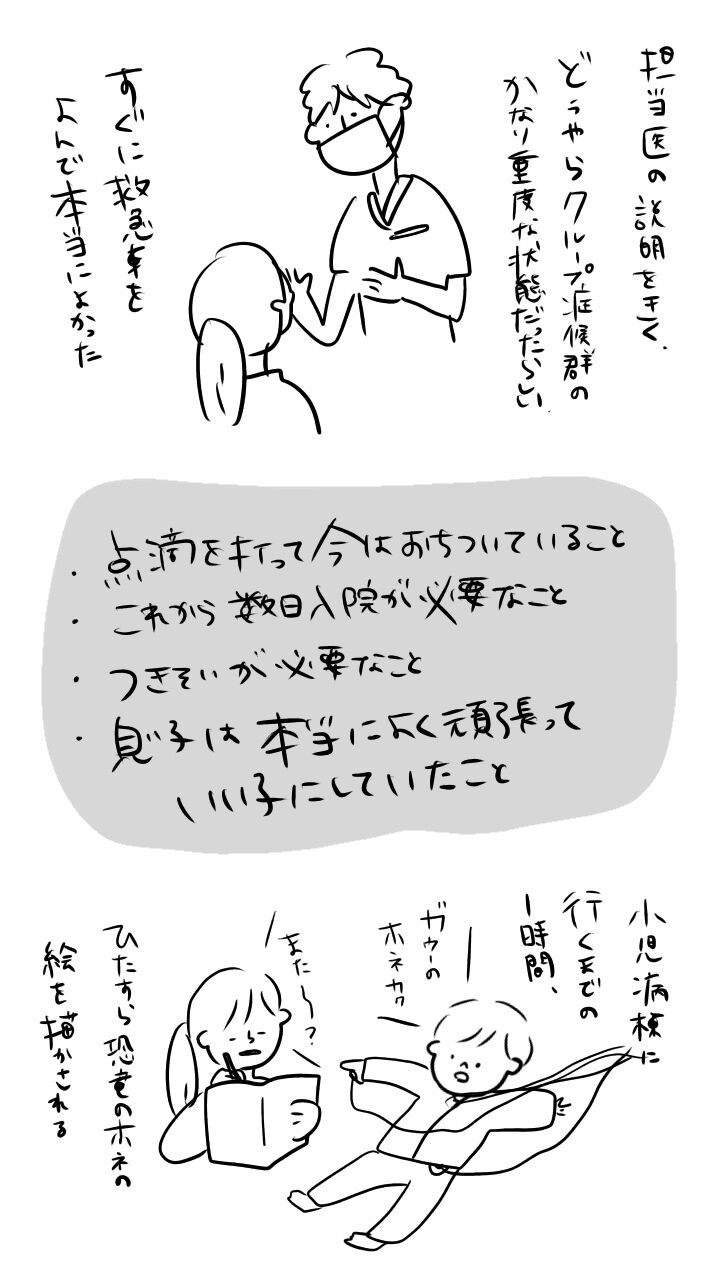 担当医の説明をきく、
どうやらクループ症候群の
かなり重度な状態だったらしい
すぐに救急車を
よんで本当によかった
・点滴を打って今はおちついていること
・これから数日入院が必要なこと
・つきそいが必要なこと
・息子は本当によく頑張って
いい子にしていたこと
小児病棟に
行くまでの
1時間、
ガウーの
ホネカク
また〜?
ひたすら恐竜のホネの
絵を描かされる